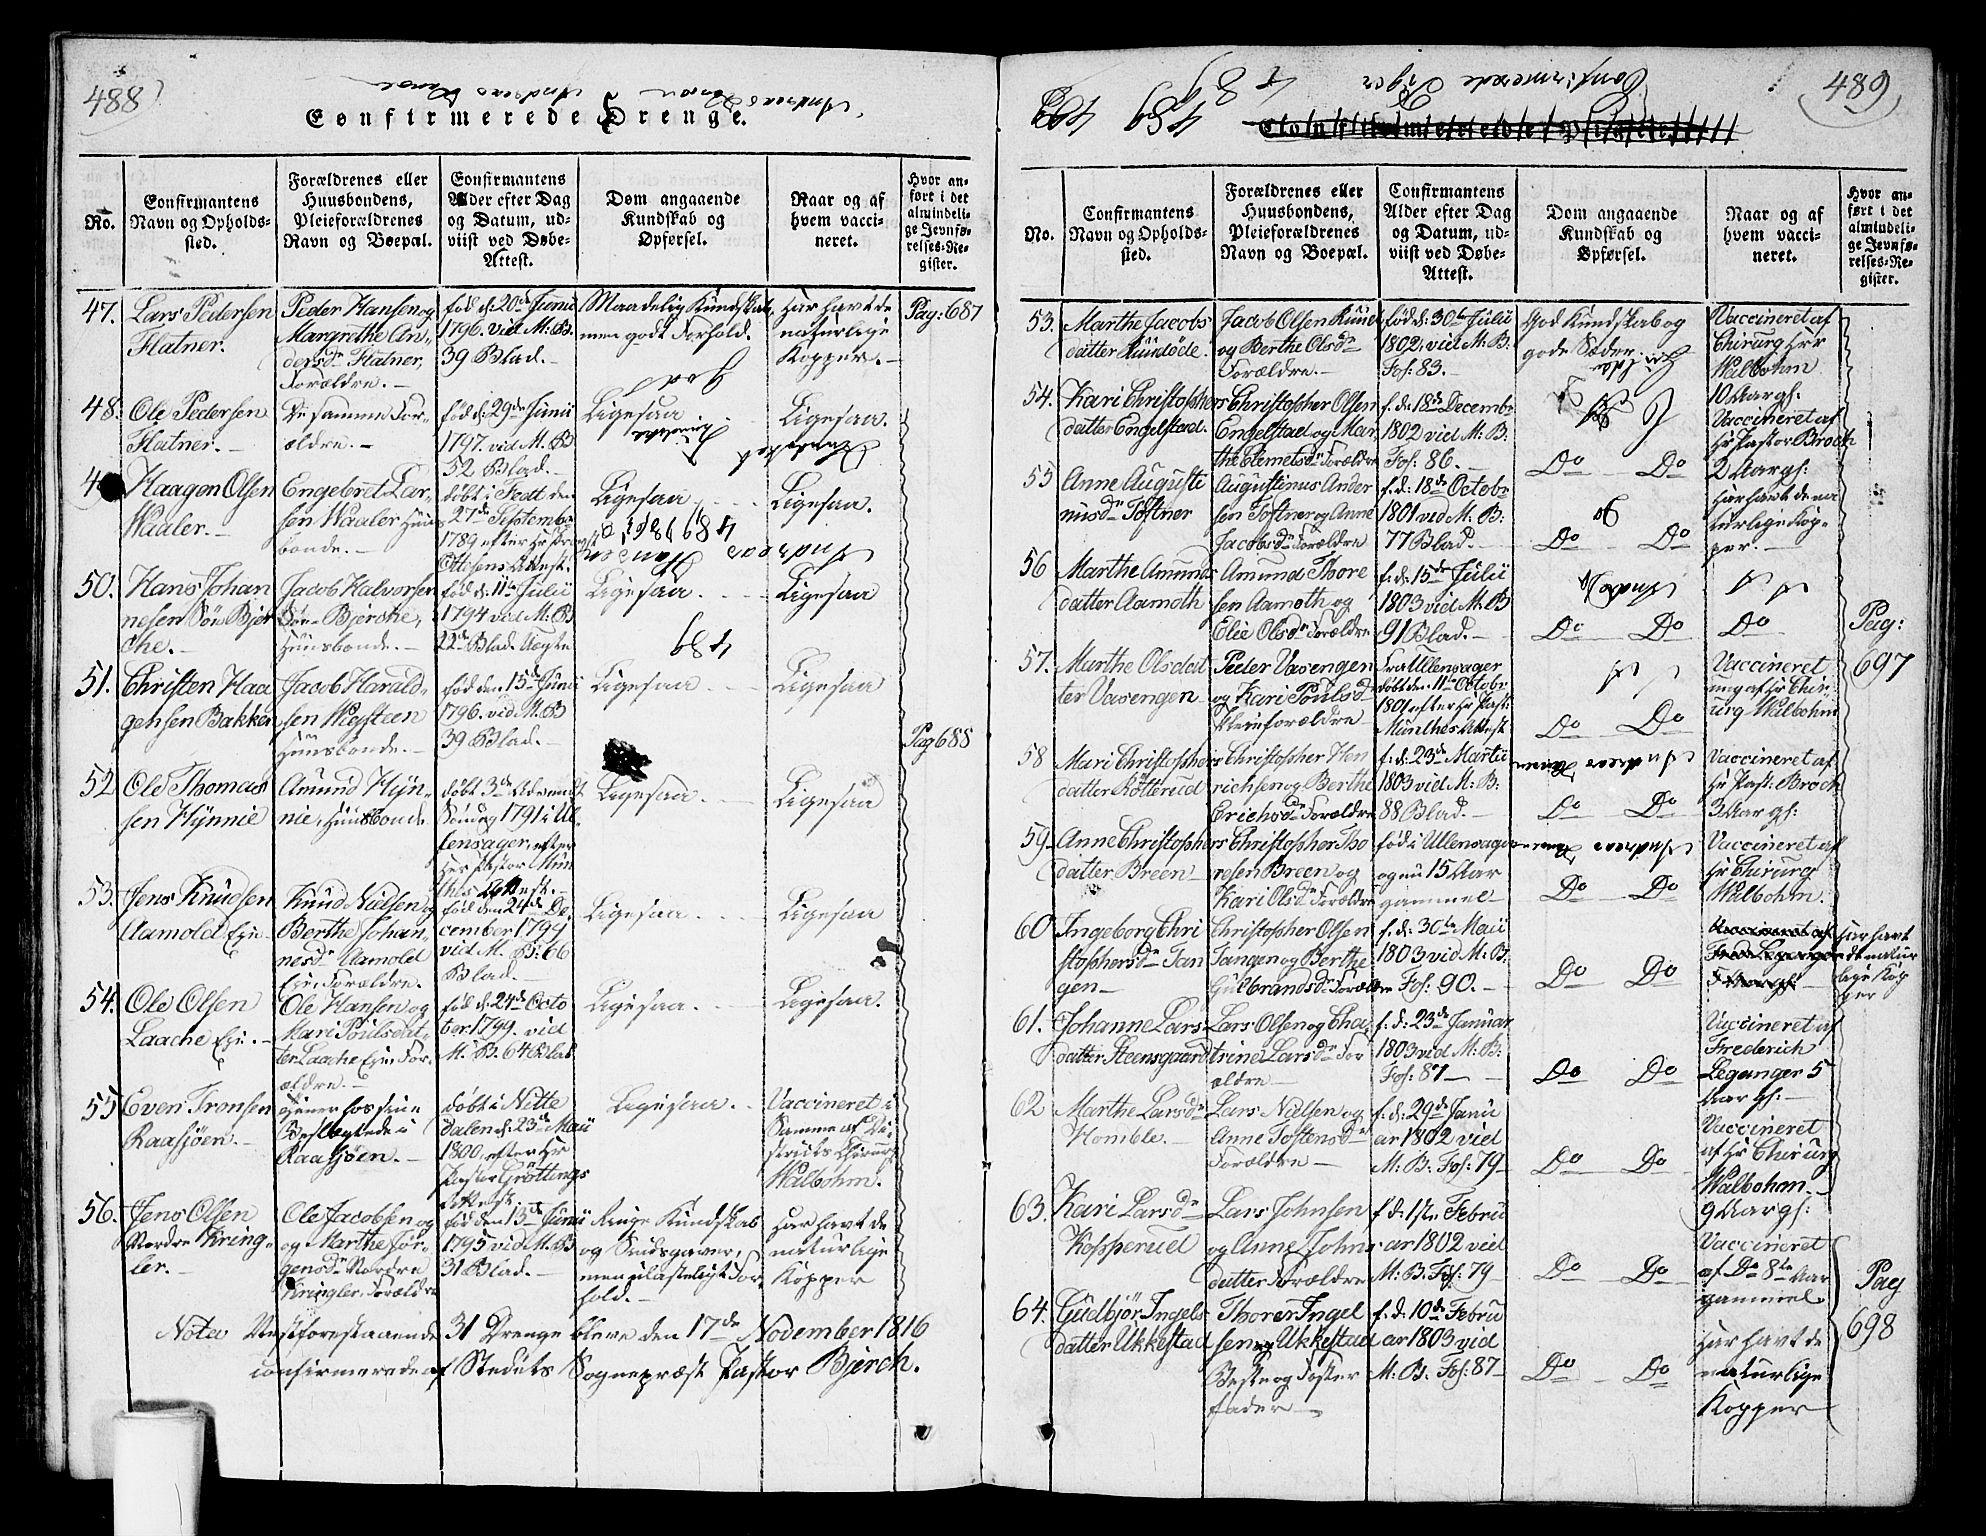 488
Confirmerede Drenge.
No.
Confirmantens
Navn og Opholds-
sted.
Forældrenes eller
Huusbondens,
Pleieforældrenes
Navn og Boepæl.
Confirmantens
Alder efter Dag
og Datum, ud-
viist ved Døbe-
Attest.
Dom angaaende
Kundskab og
Opførsel.
Naar og af
hvem vacci-
neret.
Hvor an-
ført i det
almindeli-
ge Jevnfø-
relses-Re-
gister.
47.
Lars Pedersen
Flatner.
Peder Hansen og
Margrethe An-
dersdr Flatner,
Forældre.
fød d: 20de Junii
1796. vid M: B.
39 Blad.
Maadelig Kundskab,
men godt Forhold.
Har havt de
naturlige
Kopper.
Pag: 687
48.
Ole Pedersen
Flatner.
De samme For-
ældre.
fød d: 29de Junii
1797. vid M: B
52 Blad.
Ligesaa
Ligesaa.
Haagen Olsen
Waaler.
Engebret Lar-
sen Waaler Huus
bonde.
døbt i Fedt den
27de Septembr
1789 efter Hr Provst
Ottesens Attest.
Ligesaa
Ligesaa.
50.
Hans Johan
nesen Søn Bjer
che.
Jacob Halvorsen
Søn Bjerche,
Huusbonde.
fød d: 11te Julii
1794 vid M: B
22de Blad. Uægte
Ligesaa.
Ligesaa
51.
Christen Haa
gensen Bakken
Jacob Harald-
sen Wigsteen
Huusbonde.
fød den 15de Junii
1796. vid M. B
39 Blad.
Ligesaa
Ligesaa
Pag 688
52
Ole Thomas
sen Hynnie
Amund Hyn-
nie, Huusbonde
døbt 3de Advendt
Søndag 1791 i Ul-
lensager, efter
Her Pastor Mun
thes Attest.
Ligesaa.
Ligesaa
53.
Jens Knudsen
Aamold Eje
Knud Nielsen og
Berthe Johan-
nesdr Aamold
Eje, Forældre.
fød den 24de De-
cember 1799
vid M. B: 66
Blad.
Ligesaa.
Ligesaa
54.
Ole Olsen
Laache Eje.
Ole Hansen og
Mari Poulsdat-
ter Laache Eje For-
ældre.
fød d: 24de Octo
ber 1799. vid
M. B. 64 Blad
Ligesaa
Ligesaa.
55
Even Tronsen
Raasjøen.
tjener hos sine
Beslægtede i
Raasjøen.
døbt i Nitte
dalen d: 23de Maii
1800, efter Hr
Pastor Grøttings
Attest.
Ligesaa.
Vaccineret i
Samme af Di-
stricts Chirurg
Walbohm.
56.
Jens Olsen
Nordre Kring-
ler.
Ole Jacobsen og
og Marthe Jør-
gensdr Nordre
Kringler, Forældre
fød den 13de Junii
1795 vid M. B
31 Blad.
Ringe Kundskab
og Sindsgaver,
men ulasteligt For-
hold.
Har havt de
naturlige
Kopper
Nota Vestforestaaende 31 Drenge bleve den 17de November 1816
confirmerede af Stedets Sognepræst Pastor Bjerch.
489
Confirmerede Piger
No.
Confirmantens
Navn og Opholds-
sted.
Forældrenes eller
Huusbondens,
Pleieforældrenes
Navn og Boepæl.
Confirmantens
Alder efter Dag
og Datum, ud-
viist ved Døbe-
Attest.
Dom angaaende
Kundskab og
Opførsel.
Naar og af
hvem vacci-
neret.
Hvor an-
ført i det
almindeli-
ge Jevnfø-
relses-Re-
gister.
53.
Marthe Jacobs
datter Rundøde.
Jacob Olsen
og Berthe Olsdr
Forældre.
fød d: 30te Julii
1802, vid M: B:
Fos: 83.
God Kundskab og
gode Sæder
Vaccineret af
Chirurg Hrr
Walbohm
10 Aar gs:
54.
Kari Christopher
datter Engelstad.
Christopher Olsen
Engelstad og Mar,
the Clemetsdr Forældre
f. d: 18de Decembr
1802 vid M: B:
Fos: 86.
Do Do
Vaccineret af
Hr Pastor Broch
2 Aar gs:
55
Anne Augusti
nusdr Toftner
Augustinus Ander
sen Toftner og Anne
Jacobsdr Forældre
f. d: 18de Octobr
1801 vid M: B:
77 Blad.
Do Do
Har havt de na
turlige Kop-
per.
56
Marthe Amunds
datter Aamoth
Amund Thore
sen Aamoth og
Elie Olsdr Forældre
f. d: 15de Julii
1803 vid M: B
91 Blad.
Do Do
Do
Pag:
697
57.
Marthe Olsdat
ter Vasengen
Peder Vasengen
og Kari Poulsdr
Pleieforældre
Fra Ullensager
døbt den 11te Octobr
1801 efter Hr Past:
Munthes Attest
Do Do
Vaccineret
ung af Hr Chir-
urg Walbohm
58
Mari Christopher
datter Rotterud
Christopher Hen
richsen og Berthe
Erichsdr Forældre
f. d: 23de Martii
1803 vid M: B:
88 Blad.
Do Do
Vaccineret af
Hr Past: Broch
3 Aar gs:
59
Anne Christopher
datter Breen
Christopher Tho
resen Breen og
Kari Olsdr Forældre
fød i Ullensager
og nu 15 Aar
gammel
Do Do
Vaccineret af
Hr Chirurg
Walbohm.
60
Ingeborg Chri
stophersdr Tan
gen
Christopher Olsen
Tangen og Berthe
Gulbrandsdr Forældre
f. d: 30te Maii
1803 vid M. B.
Fos: 90.
Do Do
Har havt
de natur
lige Kop
per
61.
Johanne Lars
datter Steensgaard
Lars Olsen og Cha
trine Larsdr For
ældre
f: d: 23de Januar
1803 vid M: B:
Fos: 87
Do Do
Vaccineret af
Frederich
Leganger 5
Aar gs:
62
Marthe Larsdr
Homble.
Lars Nielsen og
Anne Tostensdr
Forældre
f: d: 29de Janu
ar 1802 vid
M: B: Fos: 79
Do Do
Vaccineret
af Hr Chirurg
Walbohm.
9 Aar gs:
63.
Kari Larsdr
Kopperud
Lars Johnsen
og Anne Johns
datter Forældre
f d. 1ste Febru
ar 1802 vid
M: B. Fos: 79
Do Do
Vaccineret
af Do 8te Aar
gammel.
Pag
698
64.
Gudbjør Ingels
datter Ukkestad
Thorer Ingel
sen Ukkestad
Beste og Foster
fader
f. d. 10de Febru
ar 1803 vid
M: B: Fos: 87
Do Do
Har havt de
naturlige
Kopper